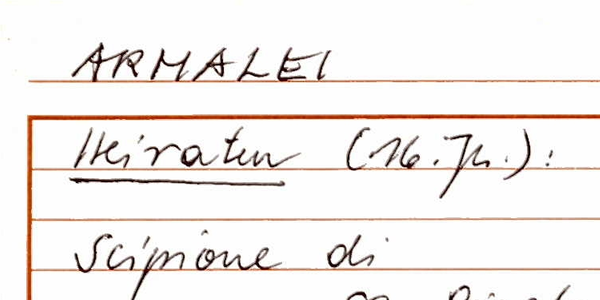 ARMALEI
Heiraten (16. Jh.):
Scipione di